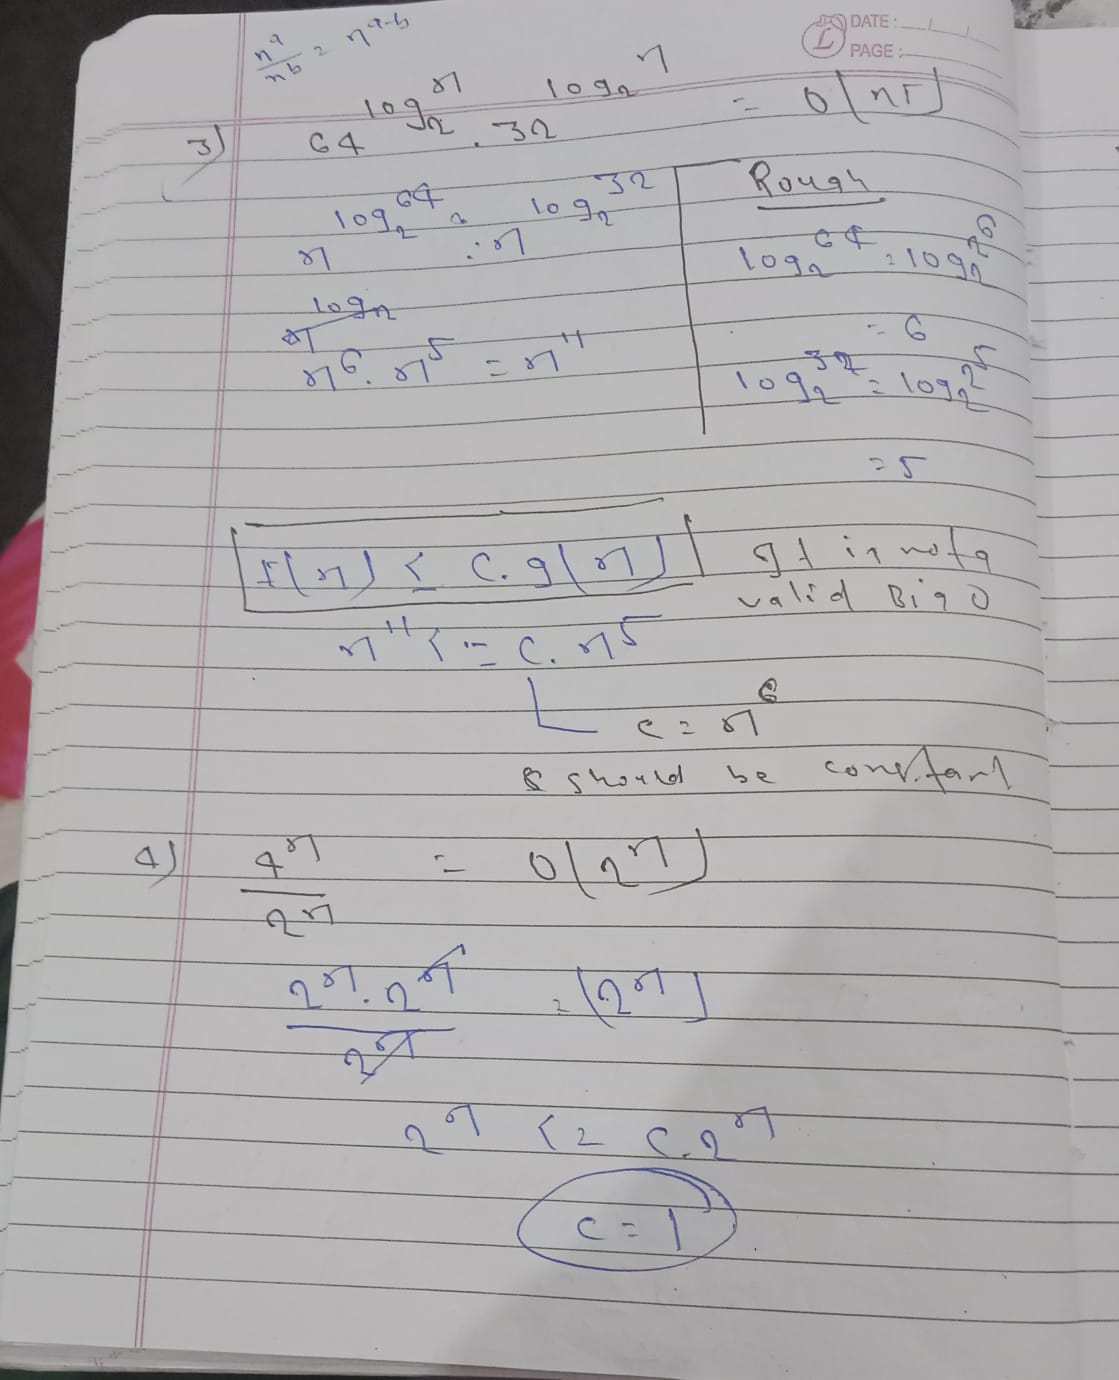 n^a / n^b = n^(a-b)
DATE :
PAGE :
3) 64^(log₂ n) . 32^(log₂ n) = O(n⁵)
n^(log₂ 64) . n^(log₂ 32)
Rough
log₂ 64 = log₂ 2⁶
= 6
log₂ 32 = log₂ 2⁵
= 5
n^(log₂
n⁶ . n⁵ = n¹¹
f(n) ≤ c.g(n)
It is not a
valid Big O
n¹¹ <= c. n⁵
c = n⁶
should be constant
4) 4ⁿ / 2ⁿ = O(2ⁿ)
2ⁿ . 2ⁿ / 2ⁿ = (2ⁿ)
2ⁿ <= c.2ⁿ
c = 1